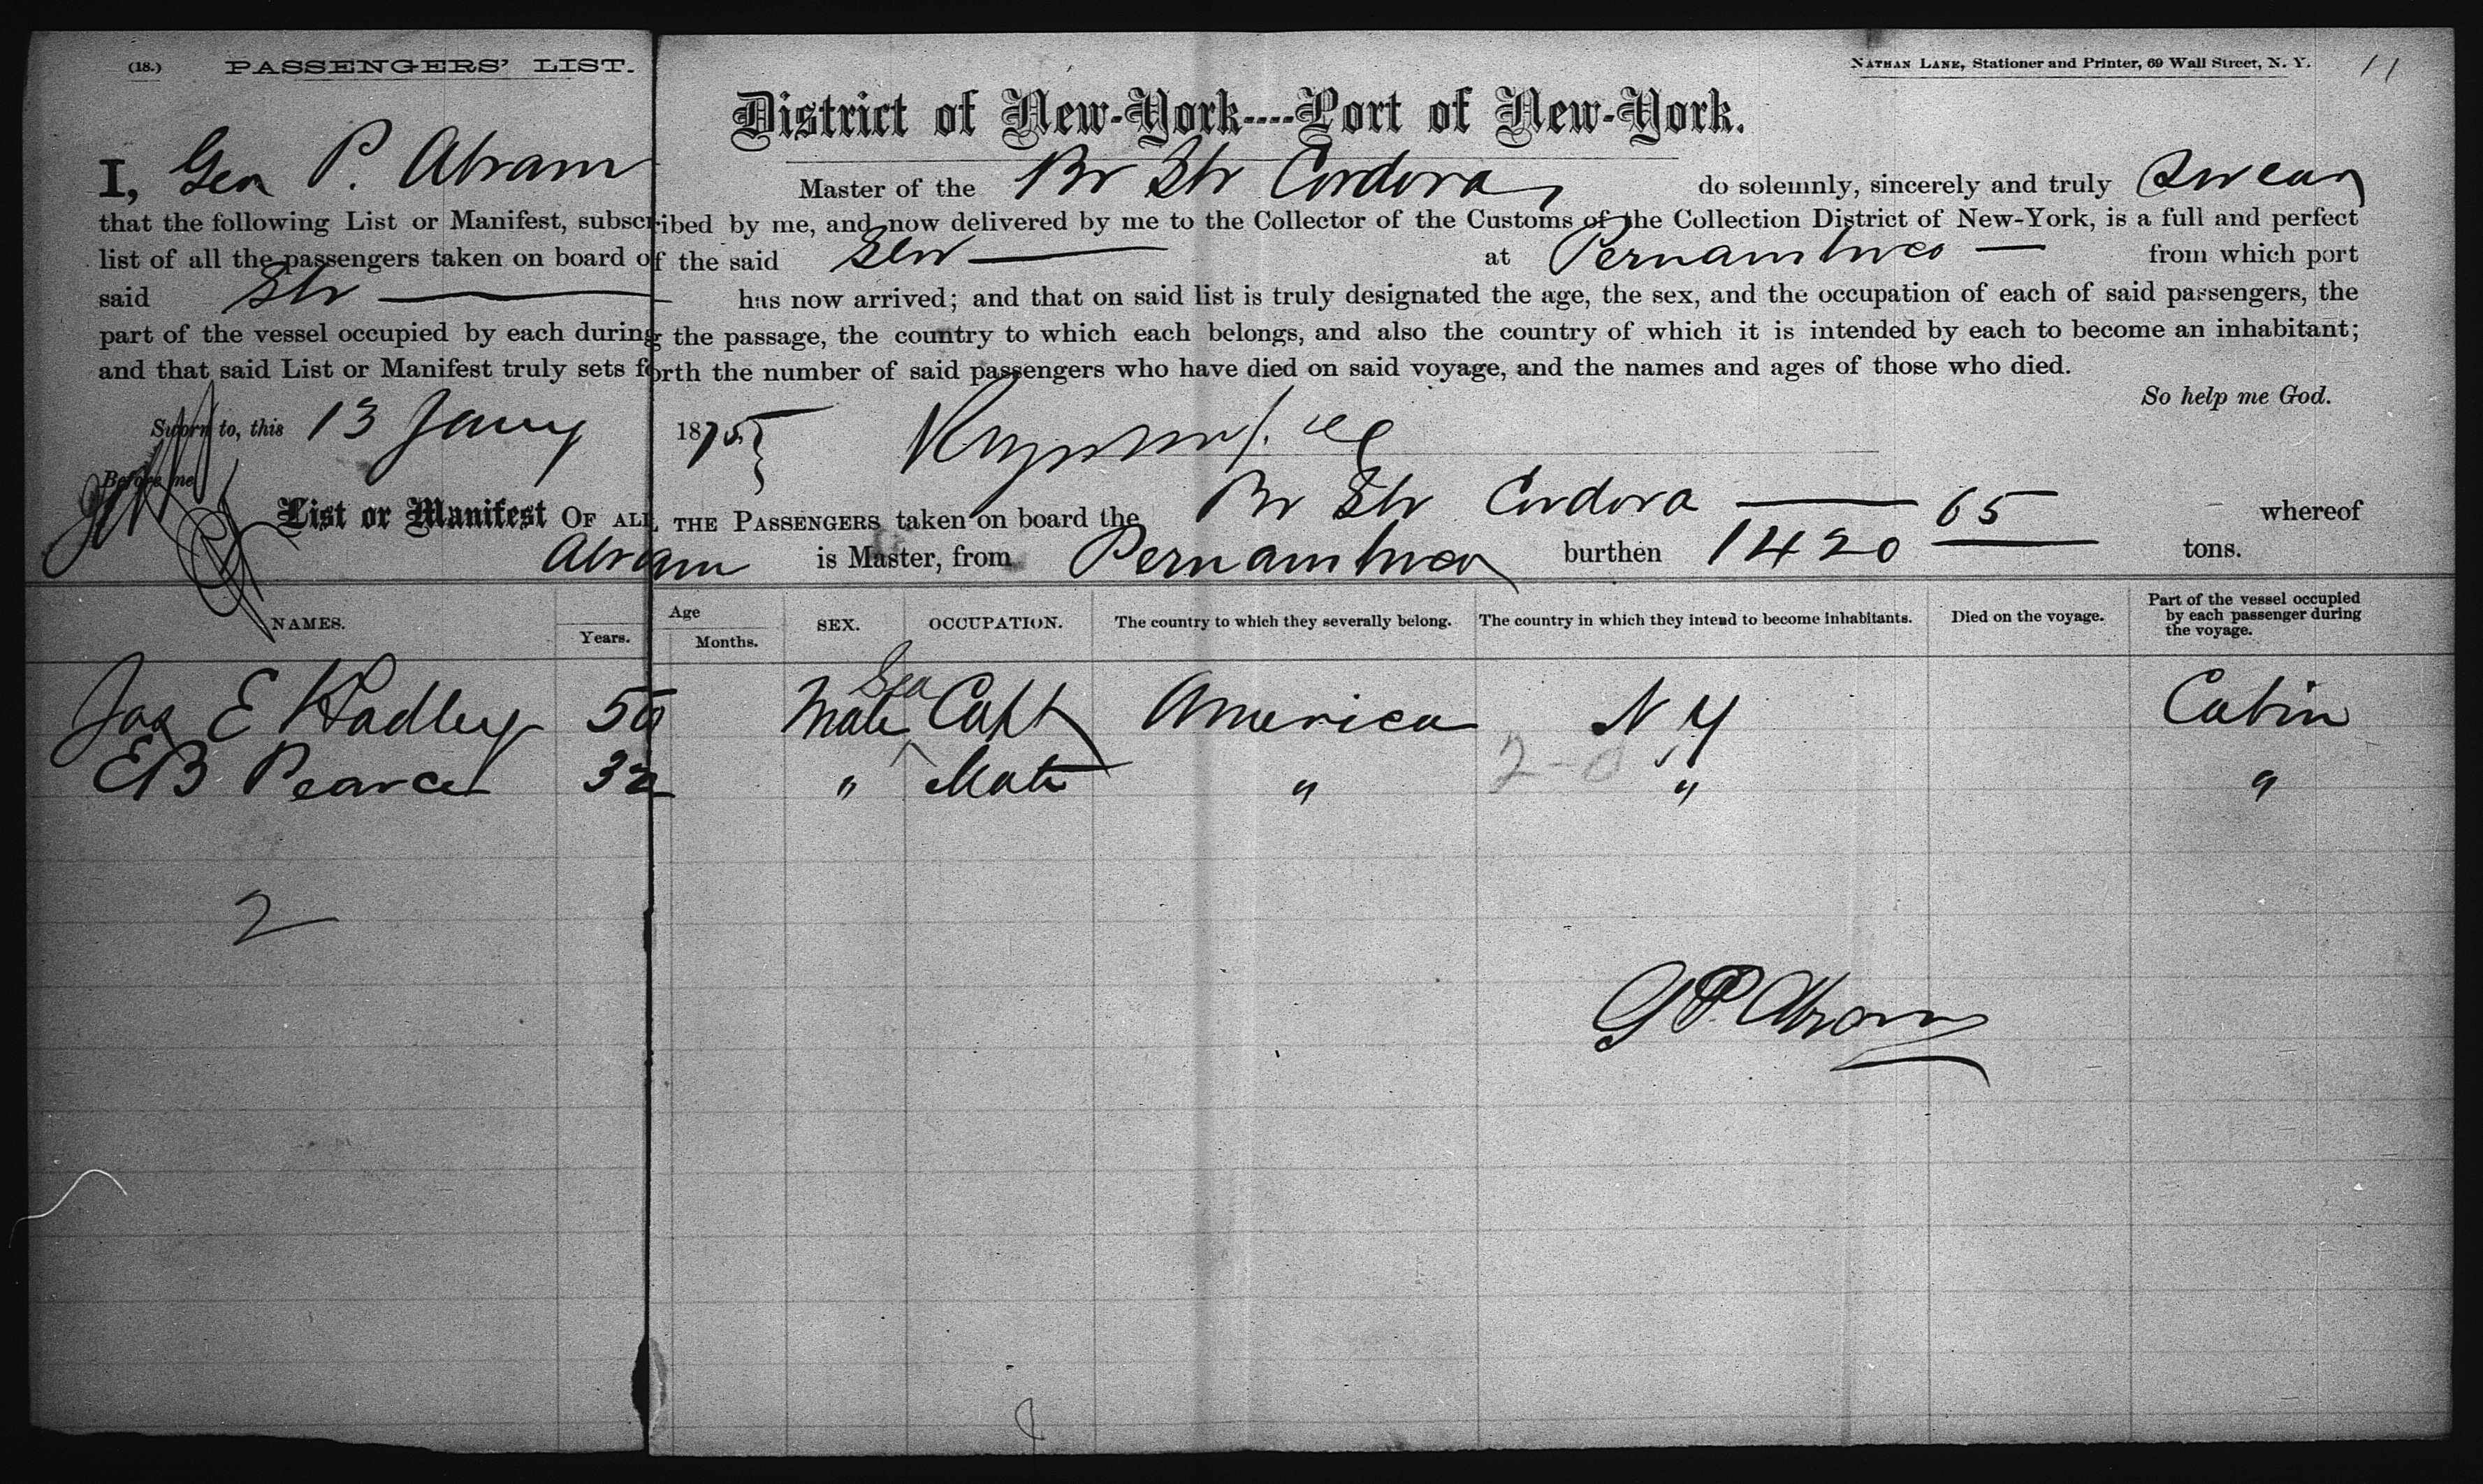 (18.) PASSENGERS' LIST.
NATHAN LANE, Stationer and Printer, 69 Wall Street, N. Y. 11
District of New-York----Port of New-York.
I, Geo P. Abram Master of the Br Str Cordova, do solemnly, sincerely and truly Swear
that the following List or Manifest, subscribed by me, and now delivered by me to the Collector of the Customs of the Collection District of New-York, is a full and perfect
list of all the passengers taken on board of the said Str at Pernambuco from which port
said Str has now arrived; and that on said list is truly designated the age, the sex, and the occupation of each of said passengers, the
part of the vessel occupied by each during the passage, the country to which each belongs, and also the country of which it is intended by each to become an inhabitant;
and that said List or Manifest truly sets forth the number of said passengers who have died on said voyage, and the names and ages of those who died.
So help me God.
Sworn to, this 13 Jany 1875
Before me
List or Manifest OF ALL THE PASSENGERS taken on board the Br Str Cordova 65 whereof
Abram is Master, from Pernambuco burthen 1420 tons.
NAMES. Age Years. Months. SEX. OCCUPATION. The country to which they severally belong. The country in which they intend to become inhabitants. Died on the voyage. Part of the vessel occupied by each passenger during the voyage.
Jos E Hadley 50 Male Sea Capt America N Y Cabin
EB Pearce 32 " Mate " " "
2
G P. Abram